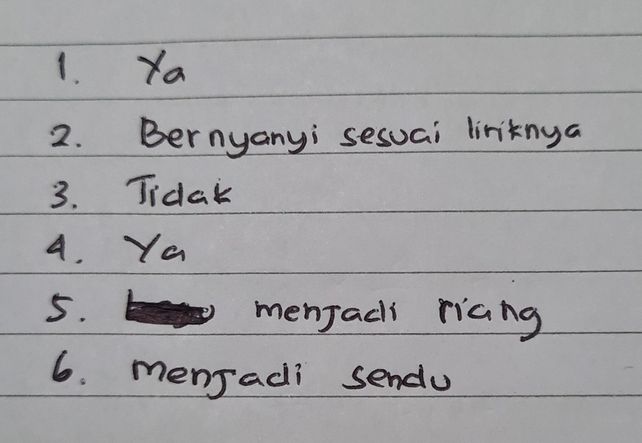 1. Ya
2. Bernyanyi sesuai liriknya
3. Tidak
4. Ya
5. menjadi riang
6. menjadi sendu